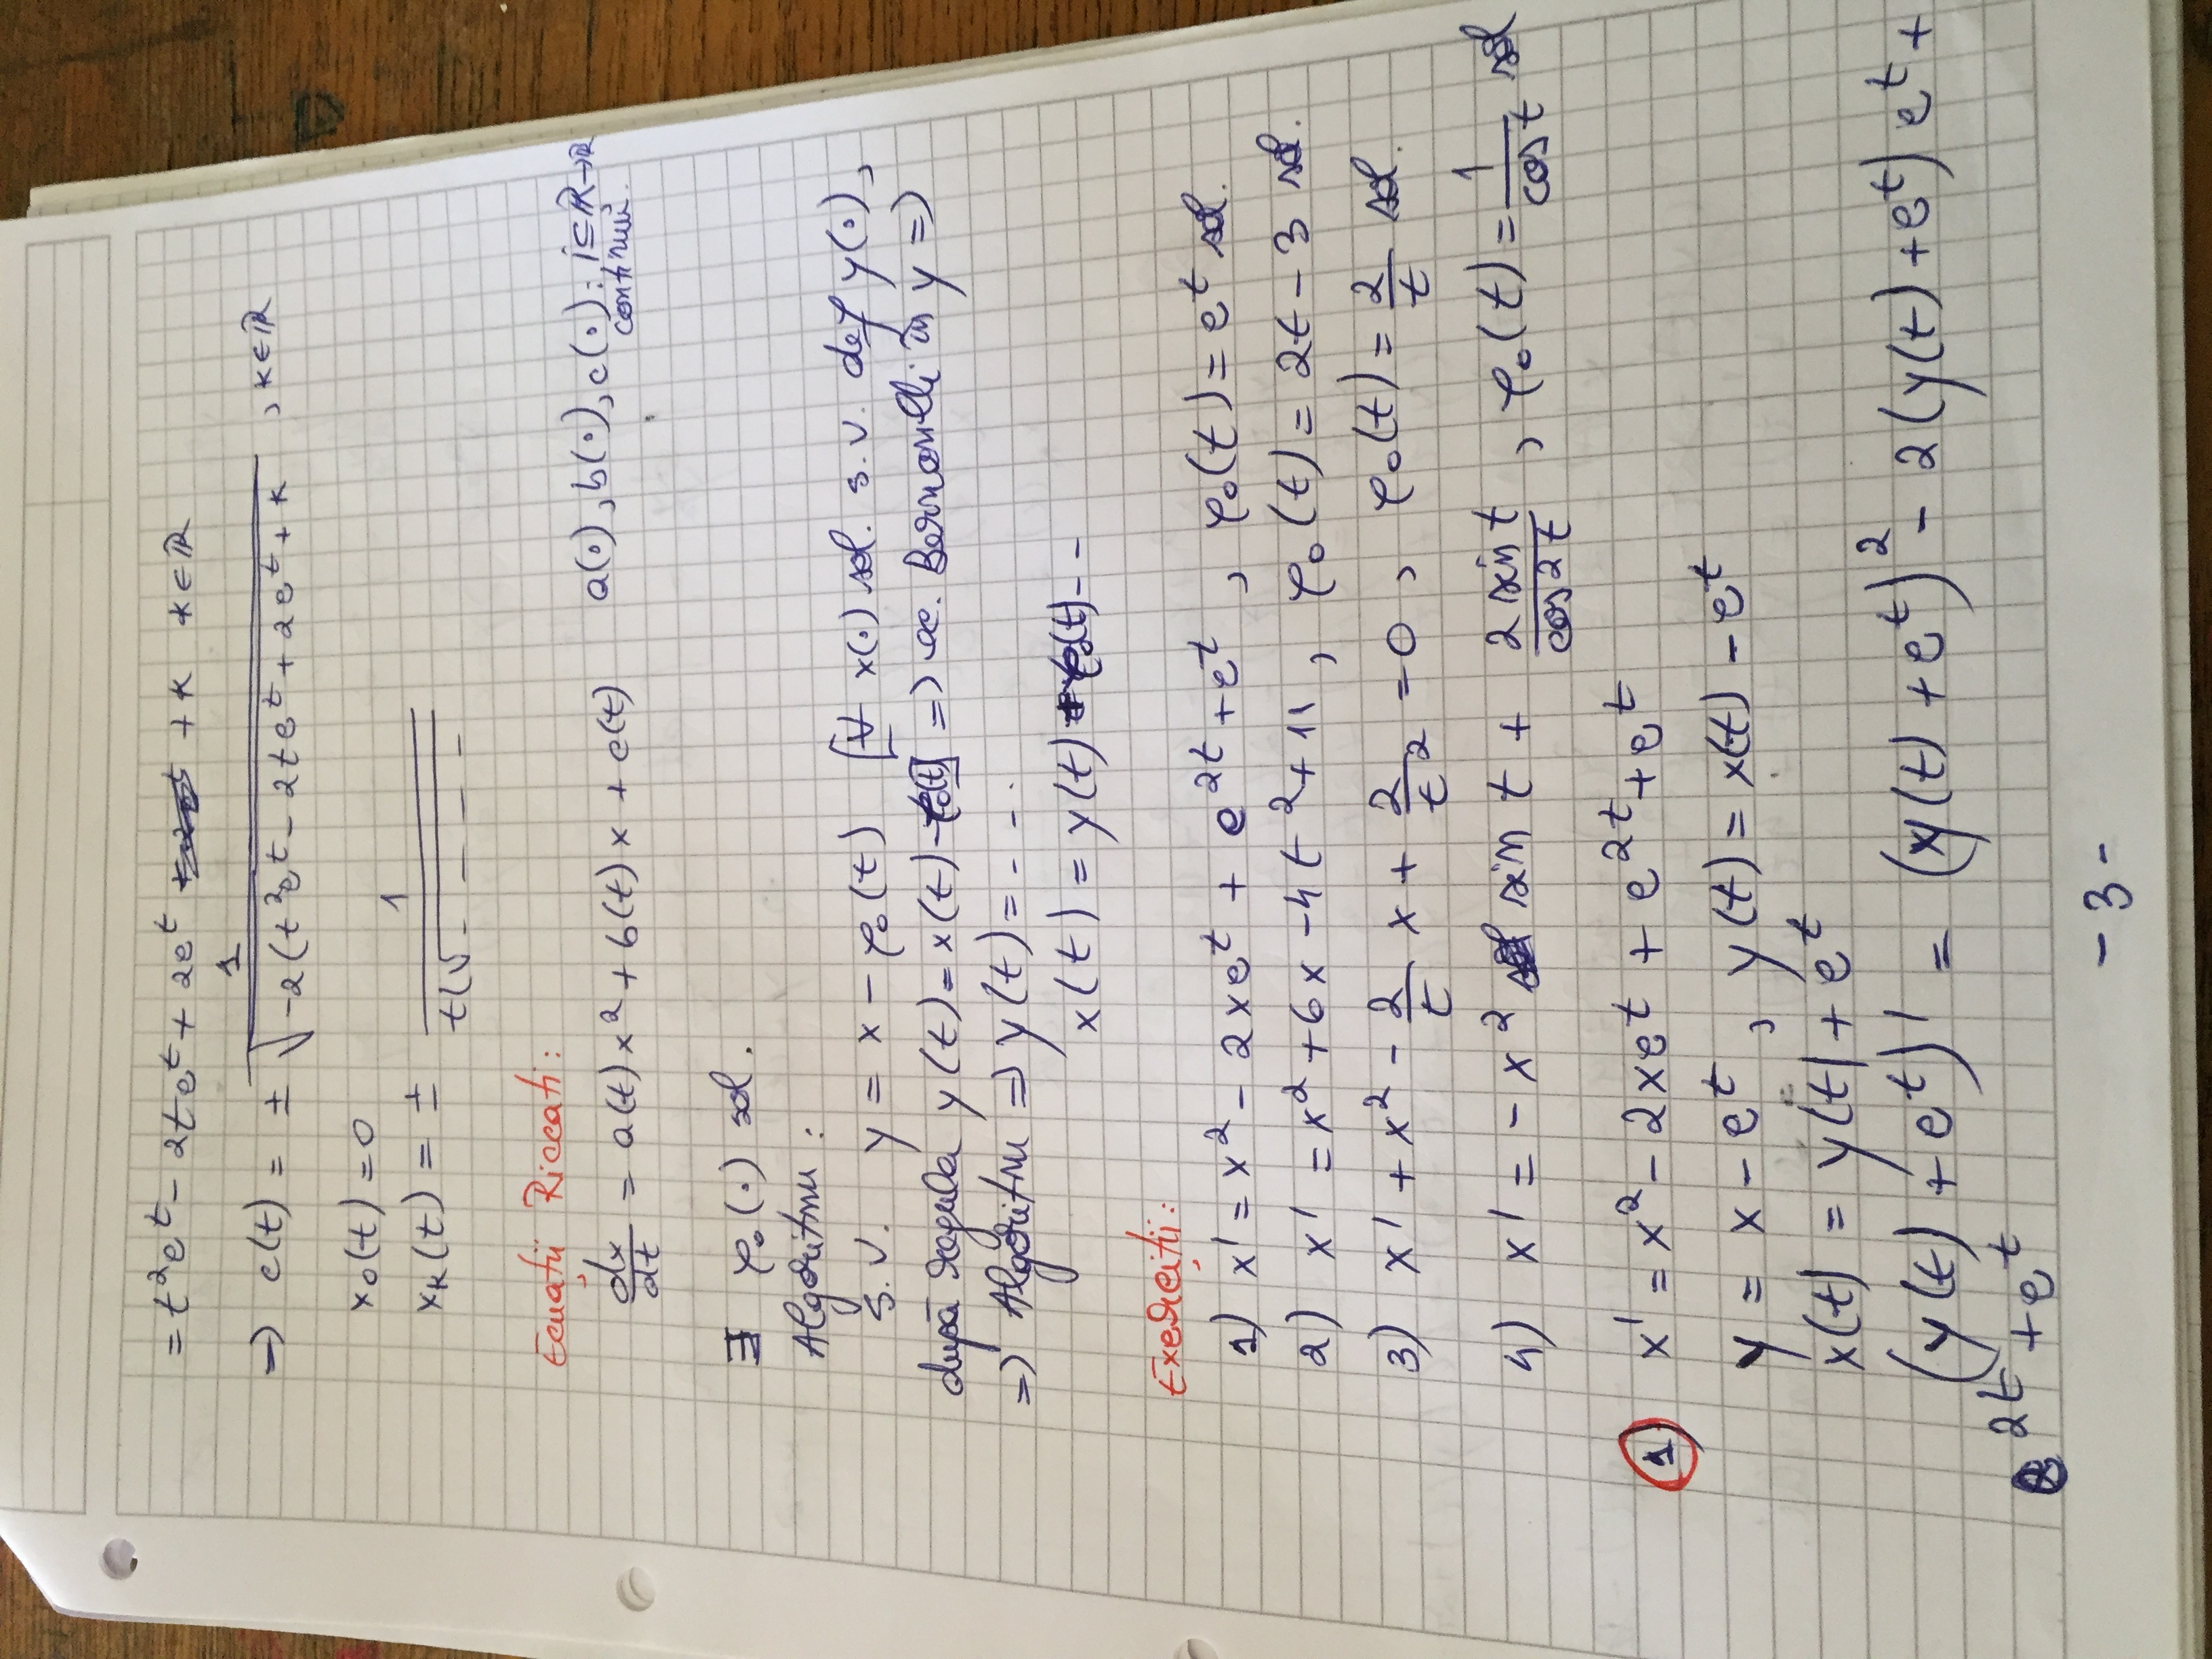 = t²eᵗ - 2teᵗ + 2eᵗ + k   k ∈ ℝ
=> c(t) = ± 1 / √(-2(t²eᵗ - 2teᵗ + 2eᵗ + k , k ∈ ℝ
x₀(t) = 0
xₖ(t) = ± 1 / t(√- - - -
Ecuații Riccati:
dx/dt = a(t)x² + b(t)x + c(t)   a(·), b(·), c(·): I ⊆ ℝ → ℝ
continui.
∃ φ₀(·) sol.
Algoritmu:
s.v. y = x - φ₀(t) [∀ x(·) sol. s.v. def y(·),
după regula y(t) = x(t) - φ₀(t)] => ec. Bernoulli în y =>
=> Algoritmu => y(t) = - - ·
x(t) = y(t) + φ₀(t) - -
Exerciții:
1) x' = x² - 2xeᵗ + e²ᵗ + eᵗ , φ₀(t) = eᵗ sol.
2) x' = x² + 6x - 4t² + 11 , φ₀(t) = 2t - 3 sol.
3) x' + x² - 2/t x + 2/t² = 0 , φ₀(t) = 2/t sol.
4) x' = -x² sin t + 2 sin t / cos 2t , φ₀(t) = 1/cos t sol
1) x' = x² - 2xeᵗ + e²ᵗ + eᵗ
y = x - eᵗ , y(t) = x(t) - eᵗ
x(t) = y(t) + eᵗ
(y(t) + eᵗ)' = (y(t) + eᵗ)² - 2(y(t) + eᵗ) eᵗ +
e²ᵗ + eᵗ
- 3 -